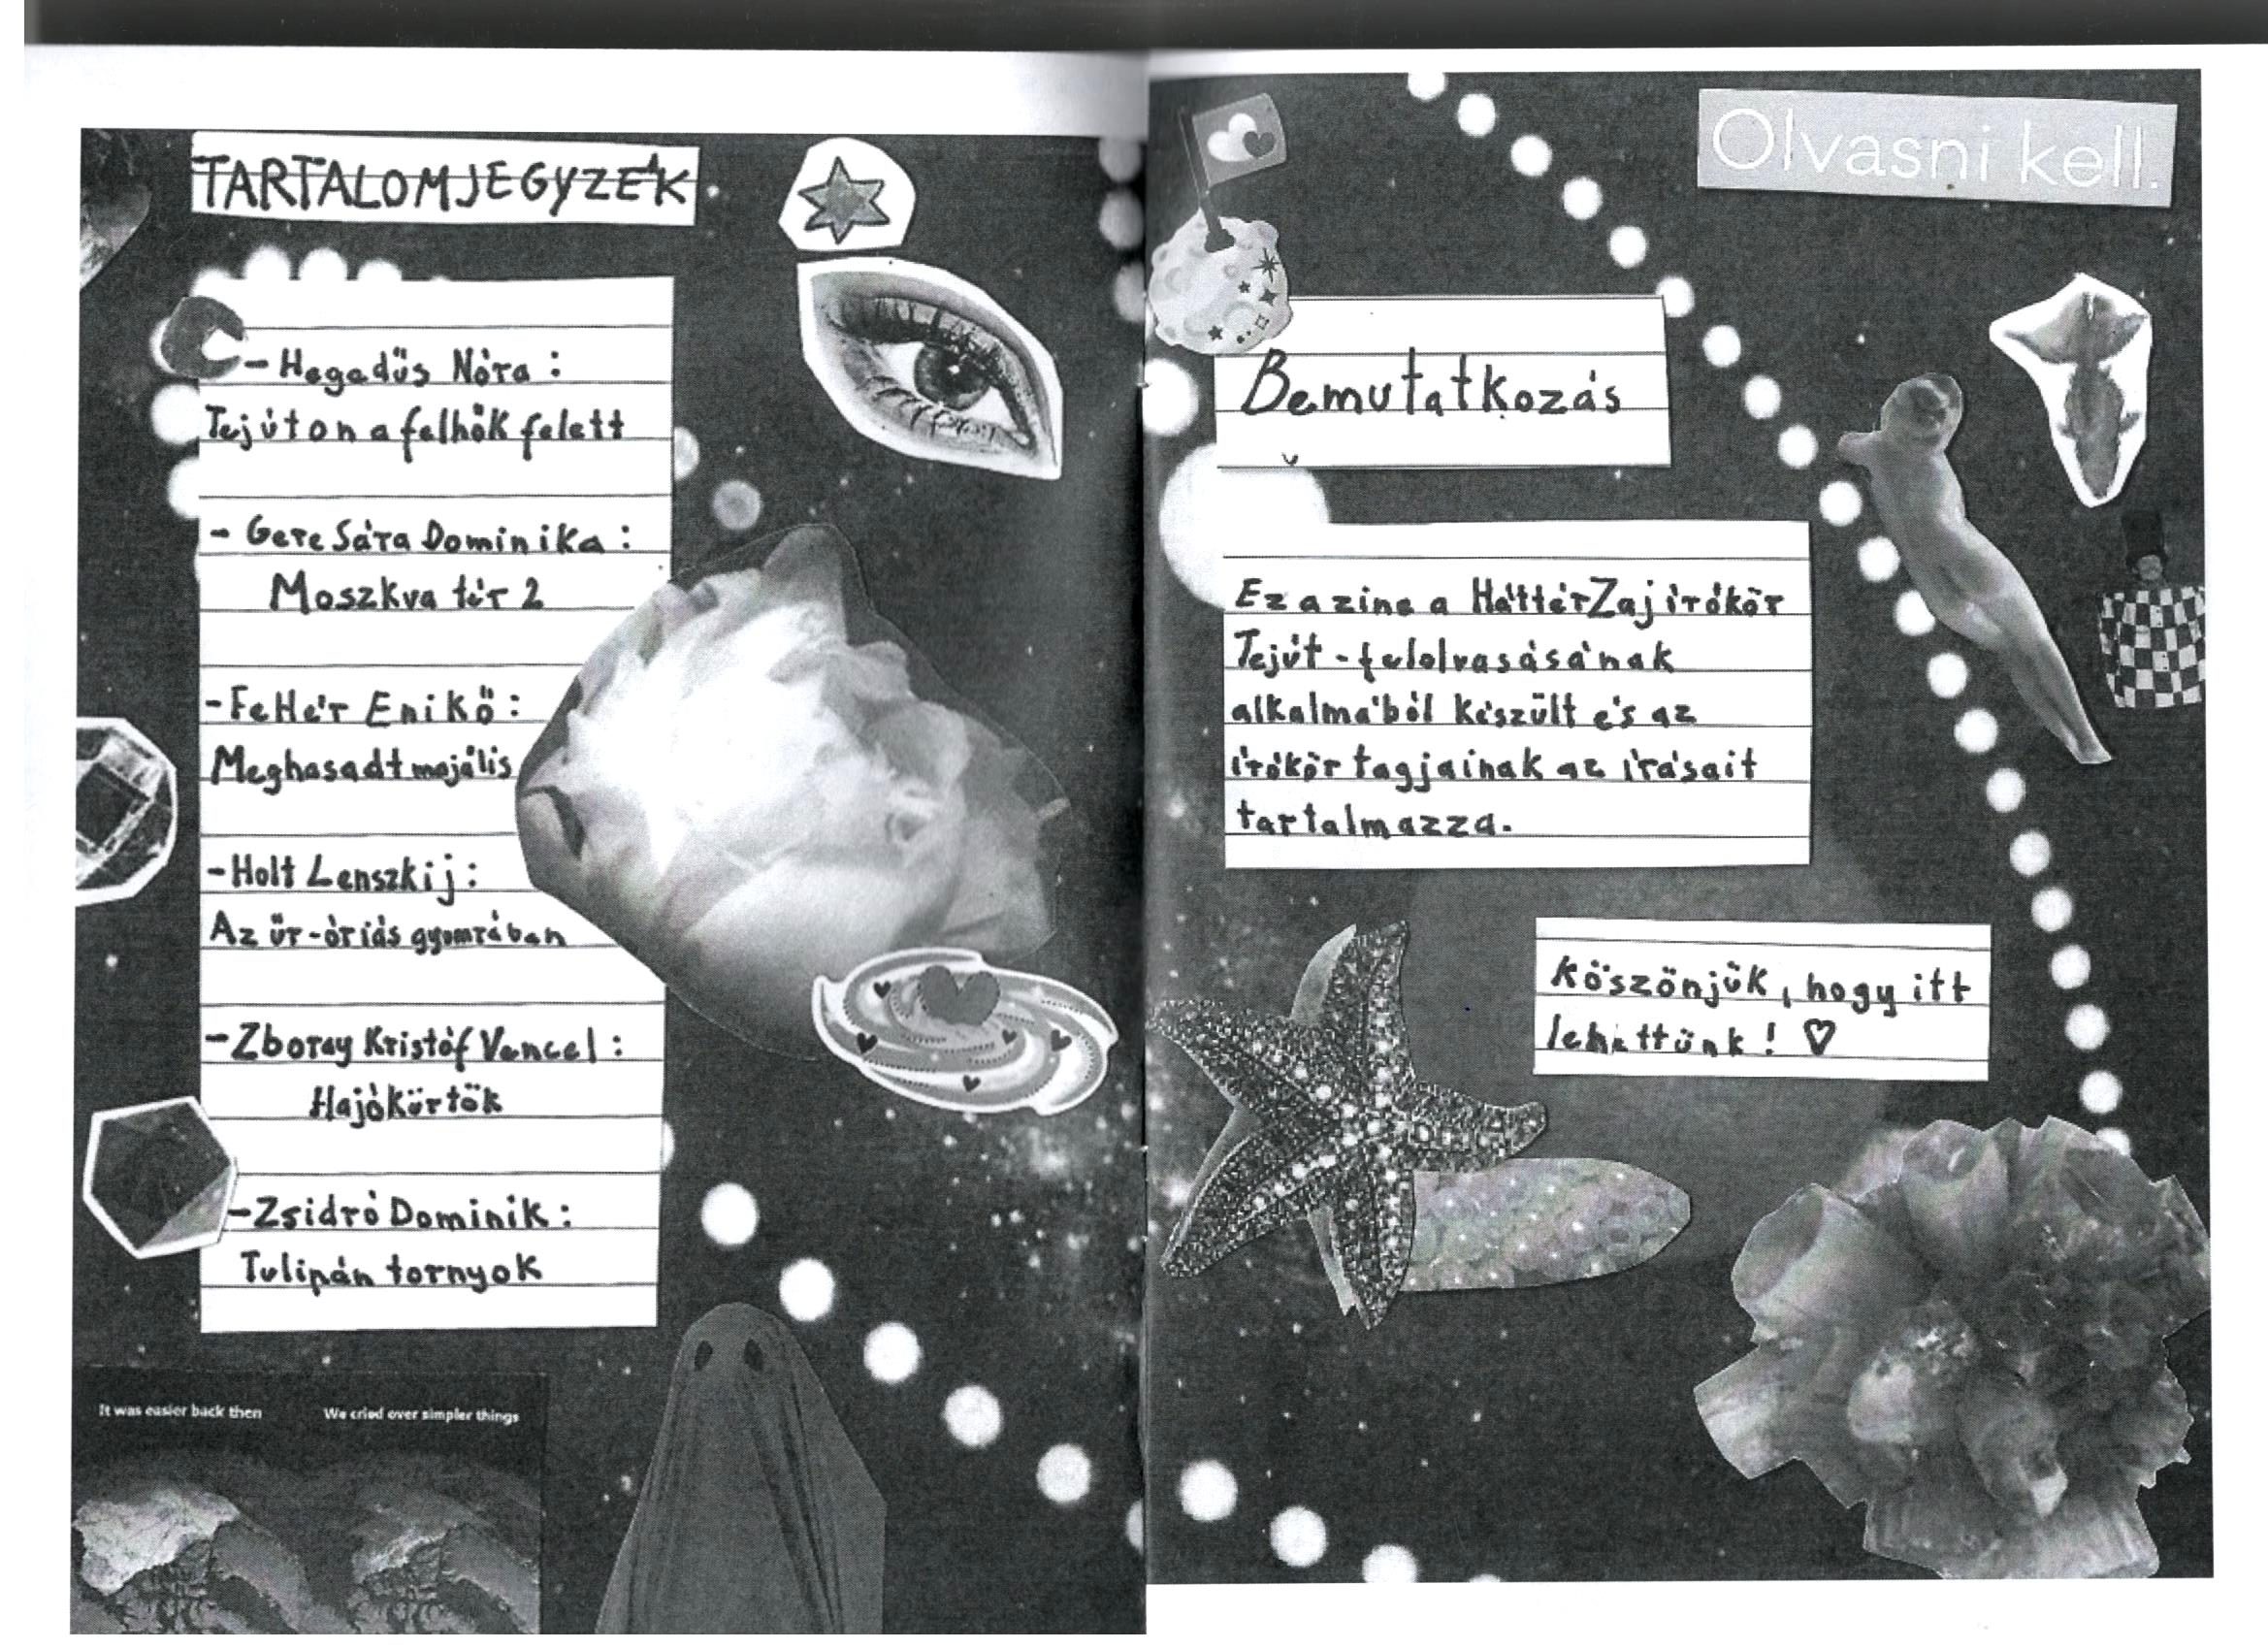 TARTALOMJEGYZÉK
- Hegedűs Nóra:
Tejúton a felhők felett
- Gere Sára Dominika:
Moszkva tér 2
- Fehér Enikő:
Meghasadt majális
- Holt Lenszkij:
Az űr-óriás gyomrában
- Zboray Kristóf Vencel:
Hajókürtök
- Zsidró Dominik:
Tulipán tornyok
It was easier back then
We cried over simpler things
Olvasni kell.
Bemutatkozás
Ez a zine a HáttérZaj írókör
Tejút-felolvasásának
alkalmából készült és az
írókör tagjainak az írásait
tartalmazza.
Köszönjük, hogy itt
lehettünk! ♡